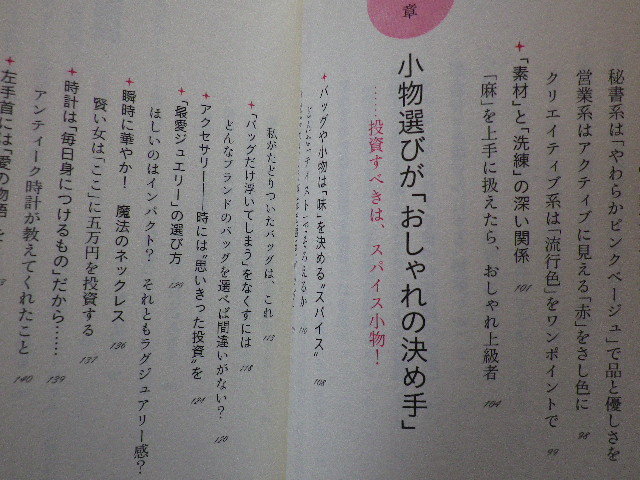 秘書系は「やわらかピンクベージュ」で品と優しさを
営業系はアクティブに見える「赤」をさし色に 98
クリエイティブ系は「流行色」をワンポイントで 99
「素材」と「洗練」の深い関係 101
「麻」を上手に扱えたら、おしゃれ上級者 104
章
小物選びが「おしゃれの決め手」
……投資すべきは、スパイス小物!
バッグや小物は「味」を決める“スパイス” 108
私がたどりついたバッグは、これ 113
「バッグだけ浮いてしまう」をなくすには 118
どんなブランドのバッグを選べば間違いがない? 120
アクセサリー——時には“思いきった投資”を 124
「最愛ジュエリー」の選び方 129
ほしいのはインパクト? それともラグジュアリー感?
瞬時に華やか! 魔法のネックレス 136
賢い女は「ここ」に五万円を投資する 137
時計は「毎日身につけるもの」だから…… 139
アンティーク時計が教えてくれたこと 140
左手首には「愛の物語」を